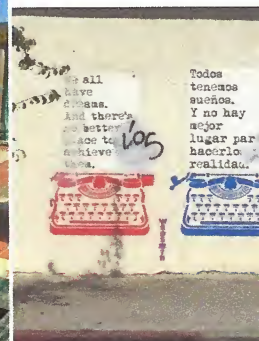 We all
have
dreams.
And there's
no better
place to
achieve
them.
Todos
tenemos
sueños.
Y no hay
mejor
lugar par
hacerlo
realidad.